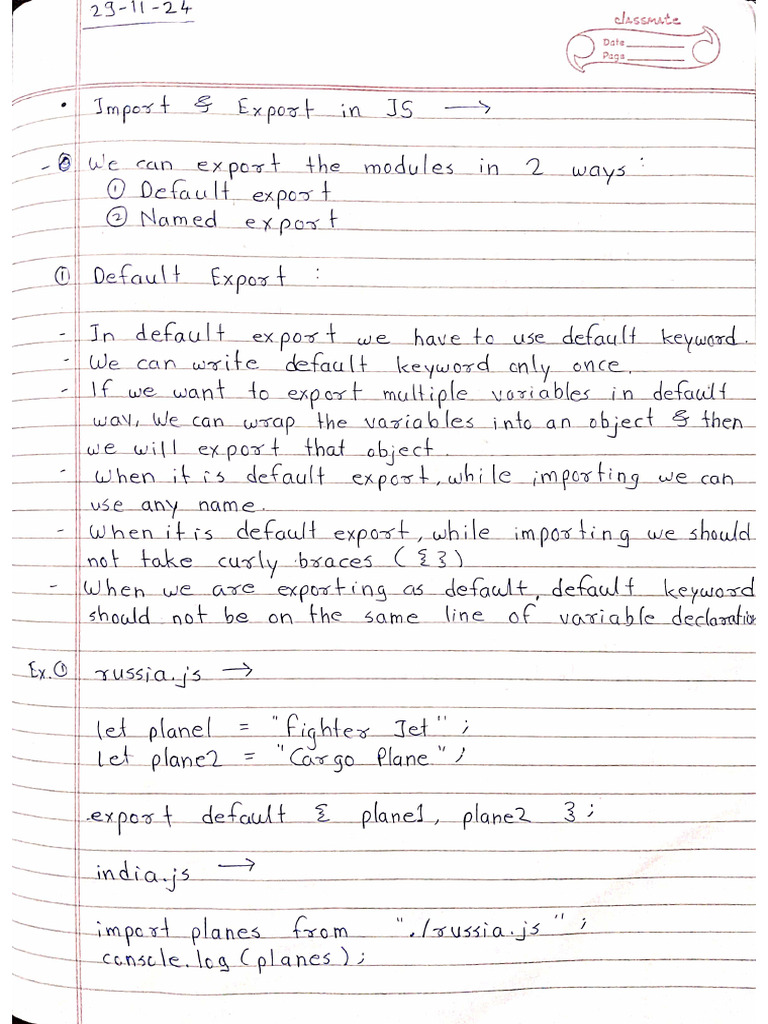 29-11-24
classmate
Date
Page
• Import & Export in JS →
- We can export the modules in 2 ways:
① Default export
② Named export
① Default Export :
- In default export we have to use default keyword.
- We can write default keyword only once.
- If we want to export multiple variables in default
way, We can wrap the variables into an object & then
we will export that object.
- When it is default export, while importing we can
use any name.
- When it is default export, while importing we should
not take curly braces ({})
- When we are exporting as default, default keyword
should not be on the same line of variable declaration
Ex.① russia.js →
let plane1 = "Fighter Jet";
let plane2 = "Cargo Plane";
export default { plane1, plane2 };
india.js →
import planes from "./russia.js";
console.log(planes);